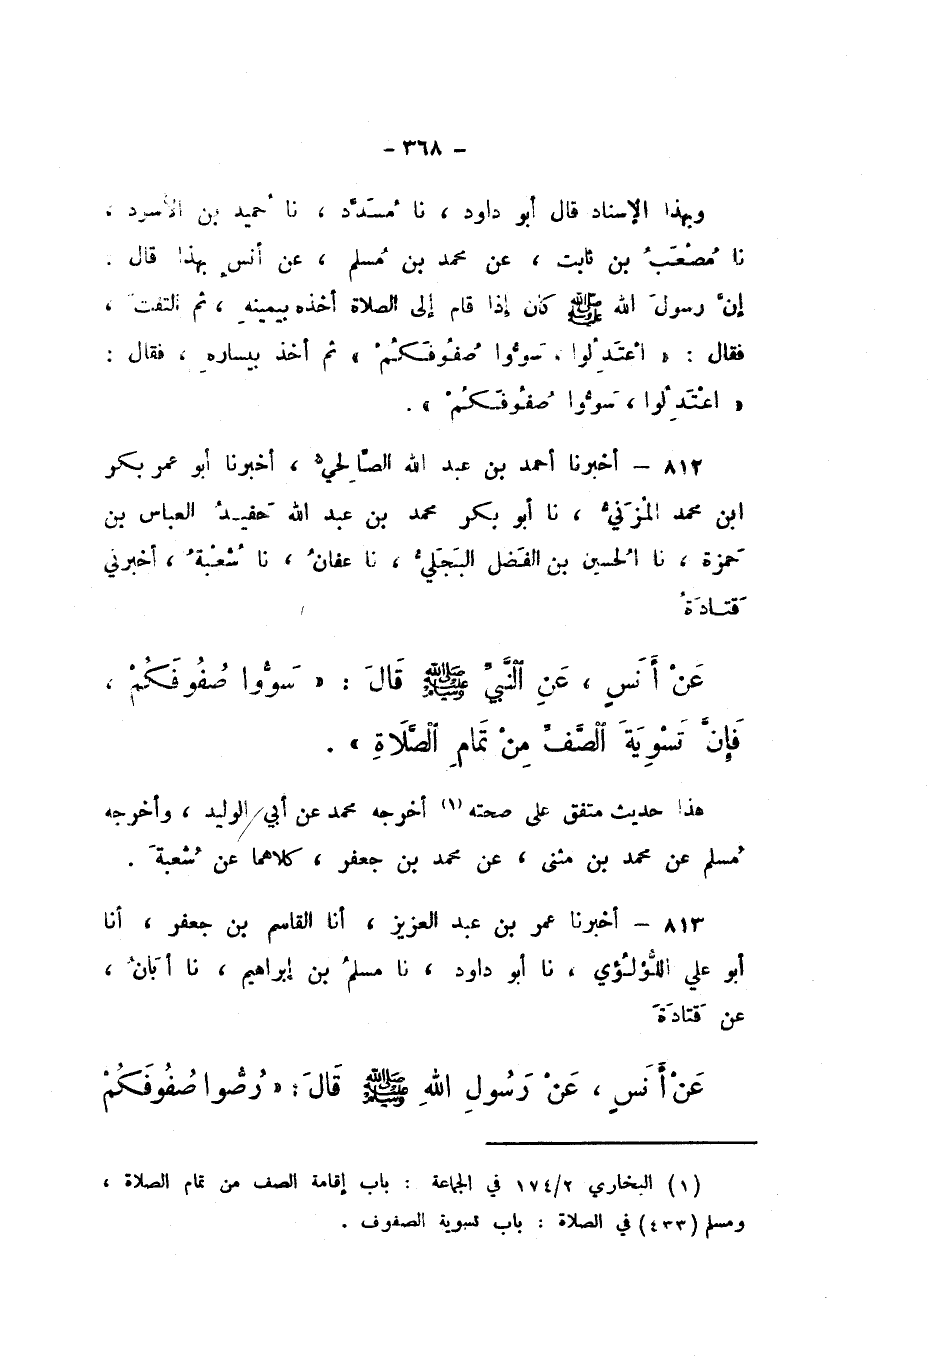 - ٣٦٨ -
وبهذا الإسناد قال أبو داود ، نا مُسَدَّد ، نا حُميد بن الأسود ،
نا مُصْعَبُ بن ثابت ، عن محمد بن مُسلم ، عن أنسٍ بهذا قال .
إنَّ رسولَ الله ﷺ كان إذا قام إلى الصلاة أخذه بيمينهِ ، ثم التفتَ ،
فقال : « اعْتَدِلُوا ، سَوُّوا صُفُوفَكُمْ » ثم أخذ بيسارهِ ، فقال :
« اعْتَدِلُوا ، سَوُّوا صُفُوفَكُمْ » .
٨١٢ – أخبرنا أحمد بن عبد الله الصَّالحِيُّ ، أخبرنا أبو عمر بكر
ابن محمد المُزَنيُّ ، نا أبو بكر محمد بن عبد الله حَفيدُ العباس بن
حَمزة ، نا الحُسين بن الفَضل البَجَليُّ ، نا عفانُ ، نا شُعْبَةُ ، أخبرني
قَتادَةُ
عَنْ أَنَسٍ ، عَنِ ٱلنَّبِيِّ ﷺ قَالَ : « سَوُّوا صُفُوفَكُمْ ،
فَإِنَّ تَسْوِيَةَ ٱلصَّفِّ مِنْ تَمَامِ ٱلصَّلَاةِ » .
هذا حديث متفق على صحته (١) أخرجه محمد عن أبي الوليد ، وأخرجه
مُسلم عن محمد بن مثنى ، عن محمد بن جعفر ، كلاهما عن شُعبةَ .
٨١٣ – أخبرنا عمر بن عبد العزيز ، أنا القاسم بن جعفر ، أنا
أبو علي اللُّؤلُؤي ، نا أبو داود ، نا مسلمُ بن إبراهيم ، نا أبَانُ ،
عن قَتادَةَ
عَنْ أَنَسٍ ، عَنْ رَسُولِ اللهِ ﷺ قَالَ : « رُصُّوا صُفُوفَكُمْ
(١) البخاري ١٧٤/٢ في الجماعة : باب إقامة الصف من تمام الصلاة ،
ومسلم (٤٣٣) في الصلاة : باب تسوية الصفوف .